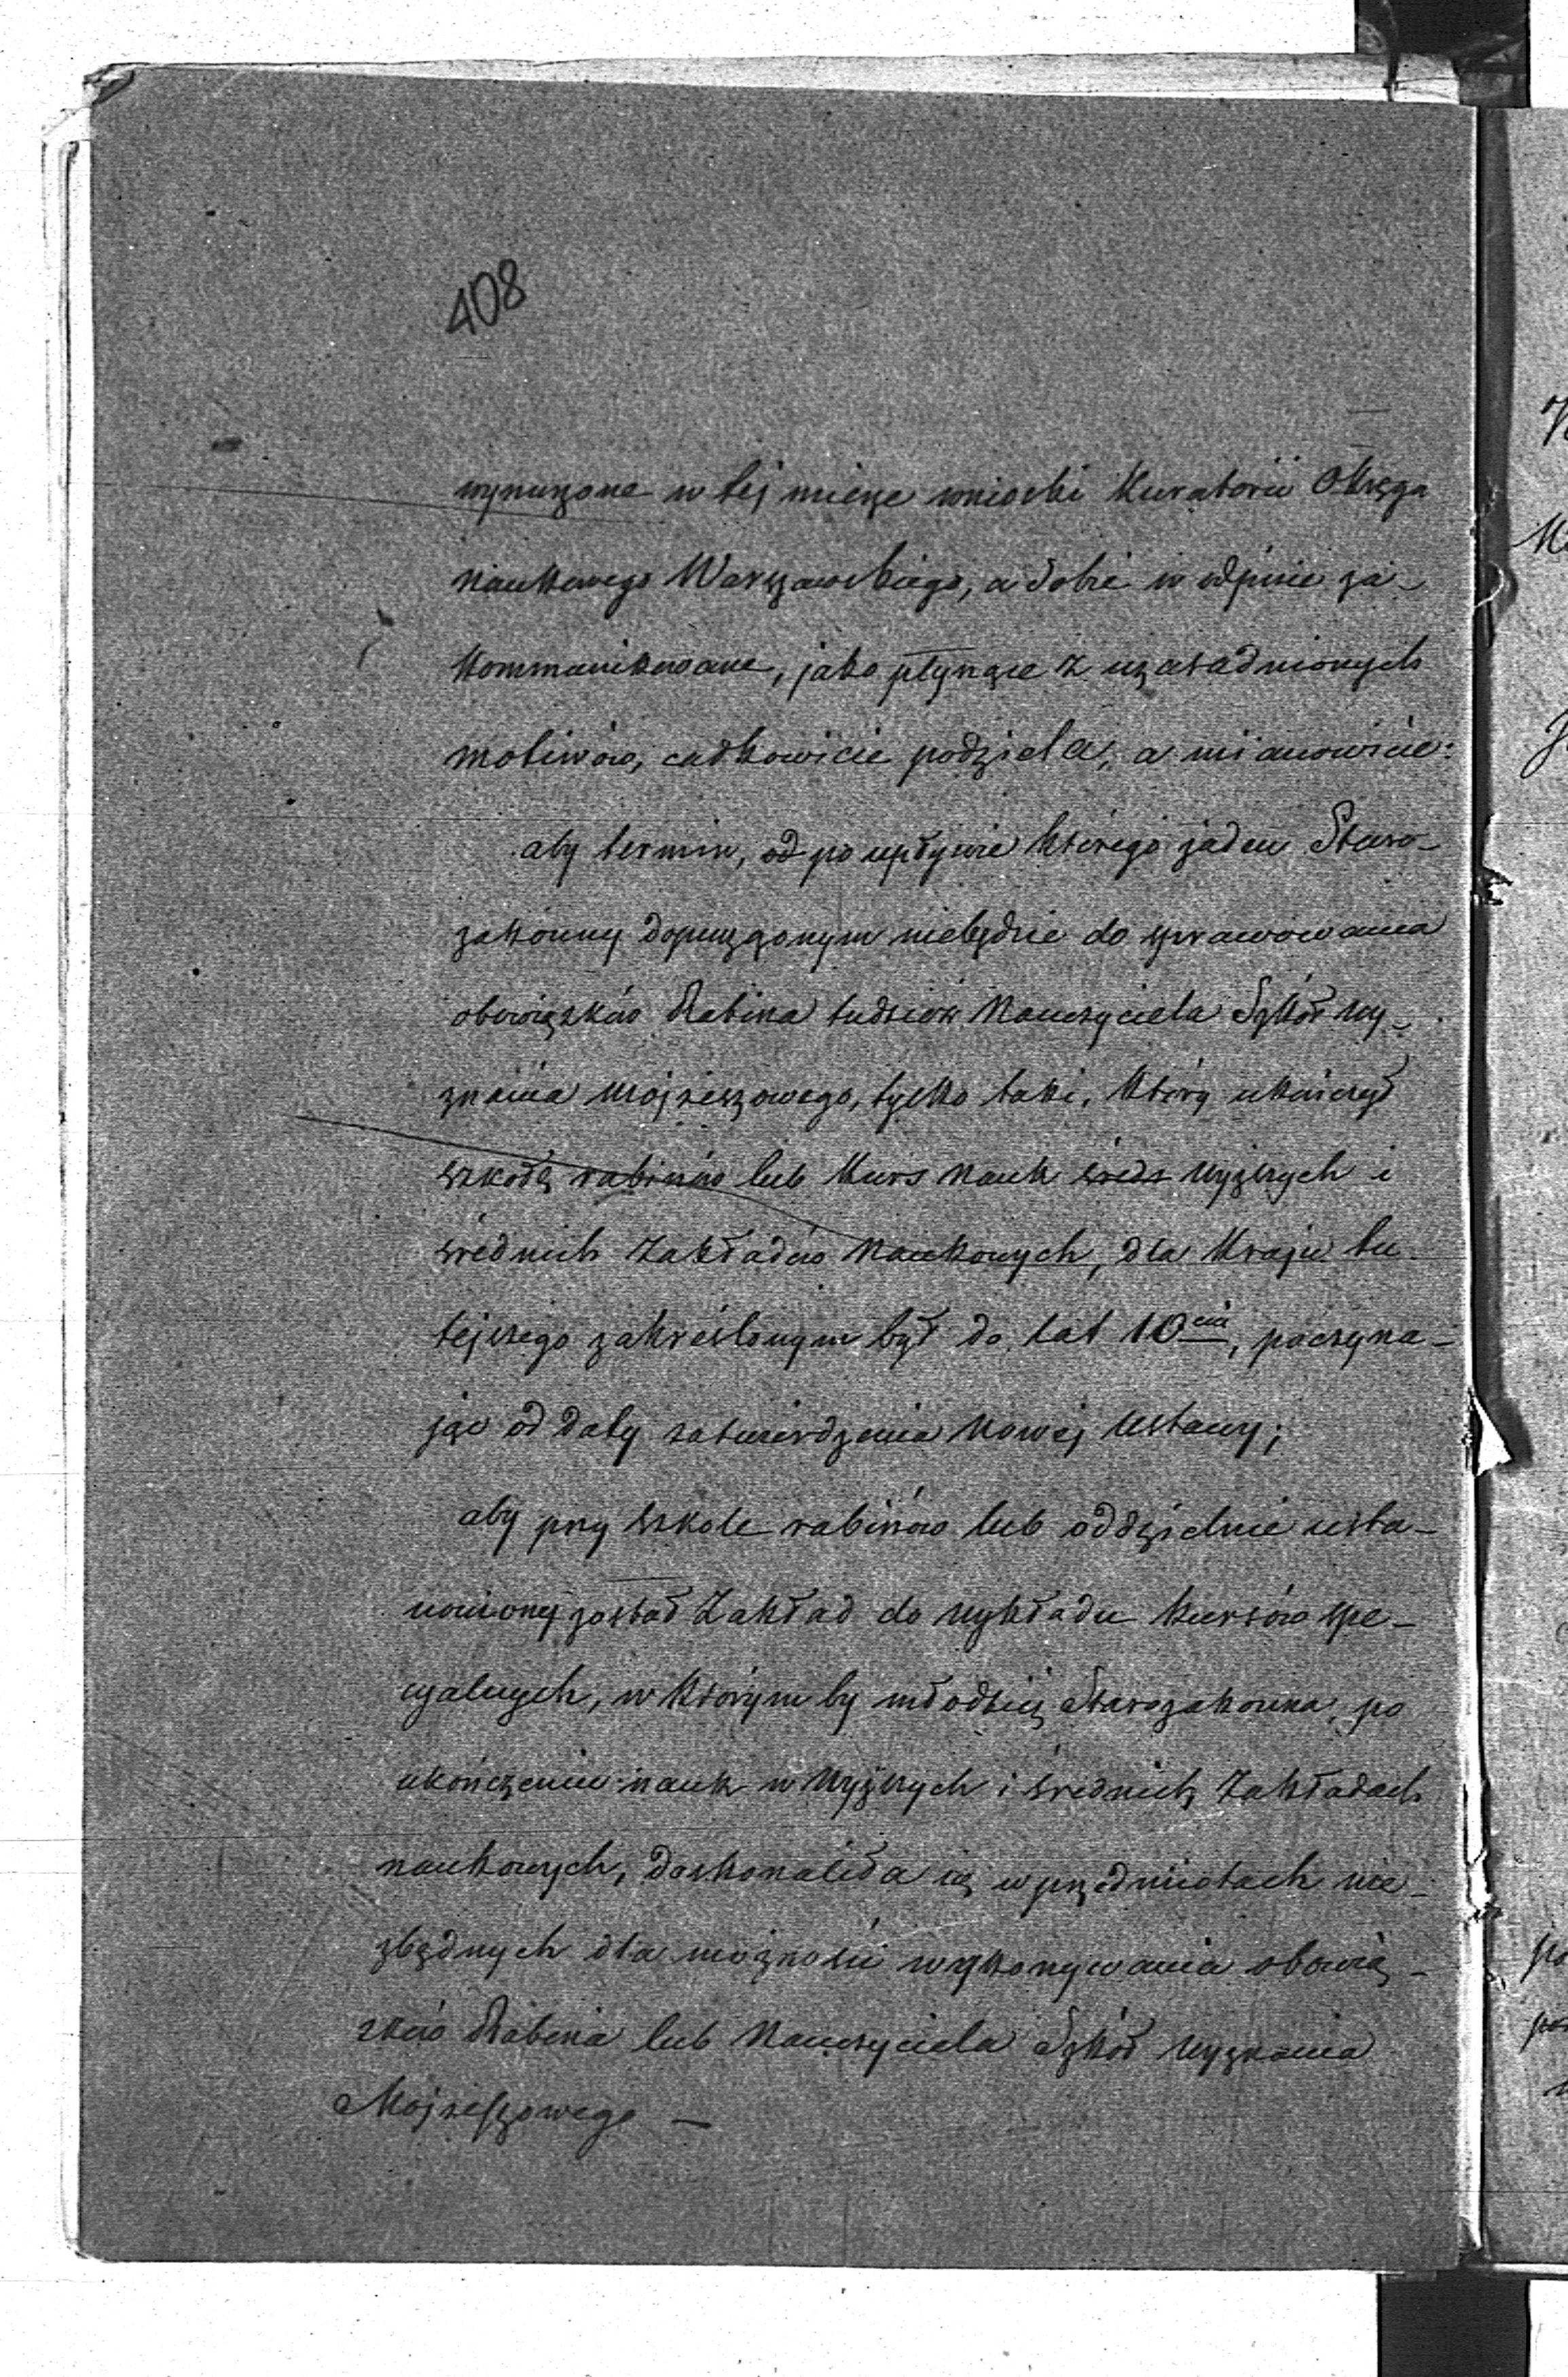 408
wynurzone w tej mierze wnioski Kuratorii Okręga
Naukowego Warszawskiego, a Sobie w odpisie za-
kommunikowane, jako płynące z uzasadnionych
motiwów, całkowicie podziela, a mianowicie:
aby termin, od po upływie którego żaden Staro-
zakonny dopuszczonym niebędzie do sprawowania
obowiązków Rabina tudzież Nauczyciela Szkół wy-
znania mojżeszowego, tylko taki, który ukończył
szkołę rabinów lub Kurs Nauk średn wyższych i
średnich Zakładów Naukowych, dla Kraju tu-
tejszego zakreślonym był do lat 10cia, poczyna-
jąc od daty zatwierdzenia Nowej Ustawy;
aby przy szkole rabinów lub oddzielnie usta-
nowiony został Zakład do wykładu Kursów spe-
cyalnych, w którym by młodzież Starozakonna, po
ukończeniu nauk w wyższych i średnich Zakładach
naukowych, doskonaliła się w przedmiotach nie-
zbędnych dla możności wykonywania obowią-
zków Rabina lub Nauczyciela Szkół wyznania
Mojżeszowego —